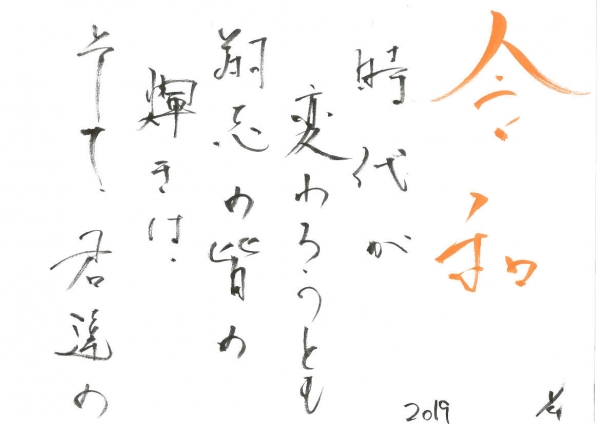 令和
時代が
変わろうとも
翔志の皆の
輝きは、
そして、君達の
2019